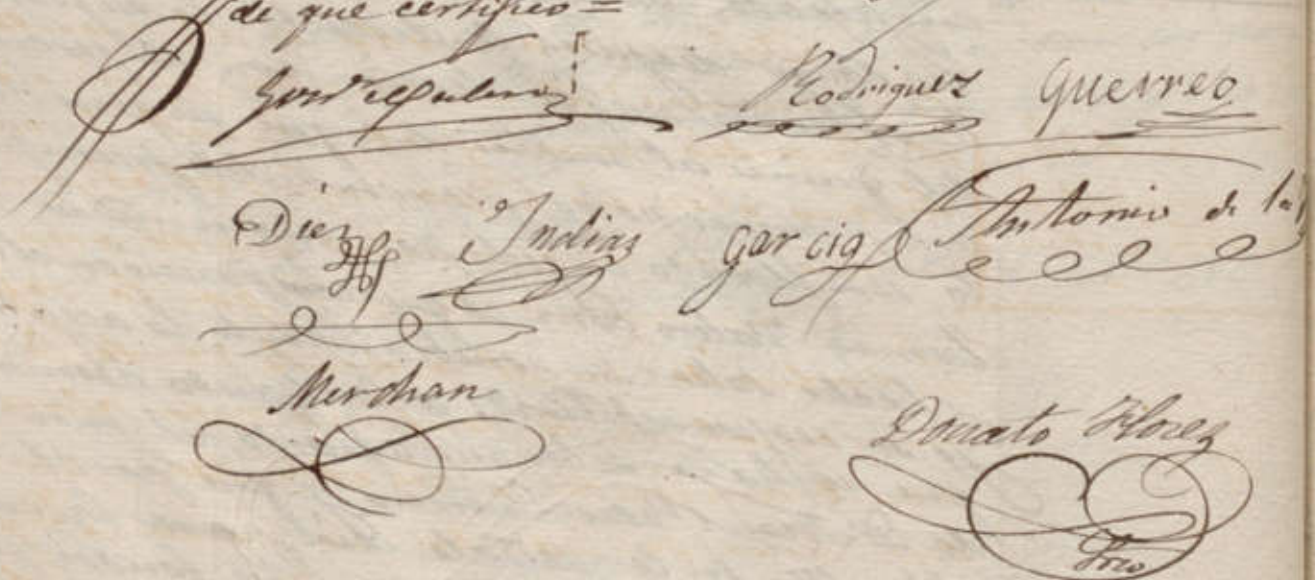 de que certifico =
Rodriguez Guerreo
Diez Indias Garcia Antonio de la
Merchan
Donato Florez
Srio